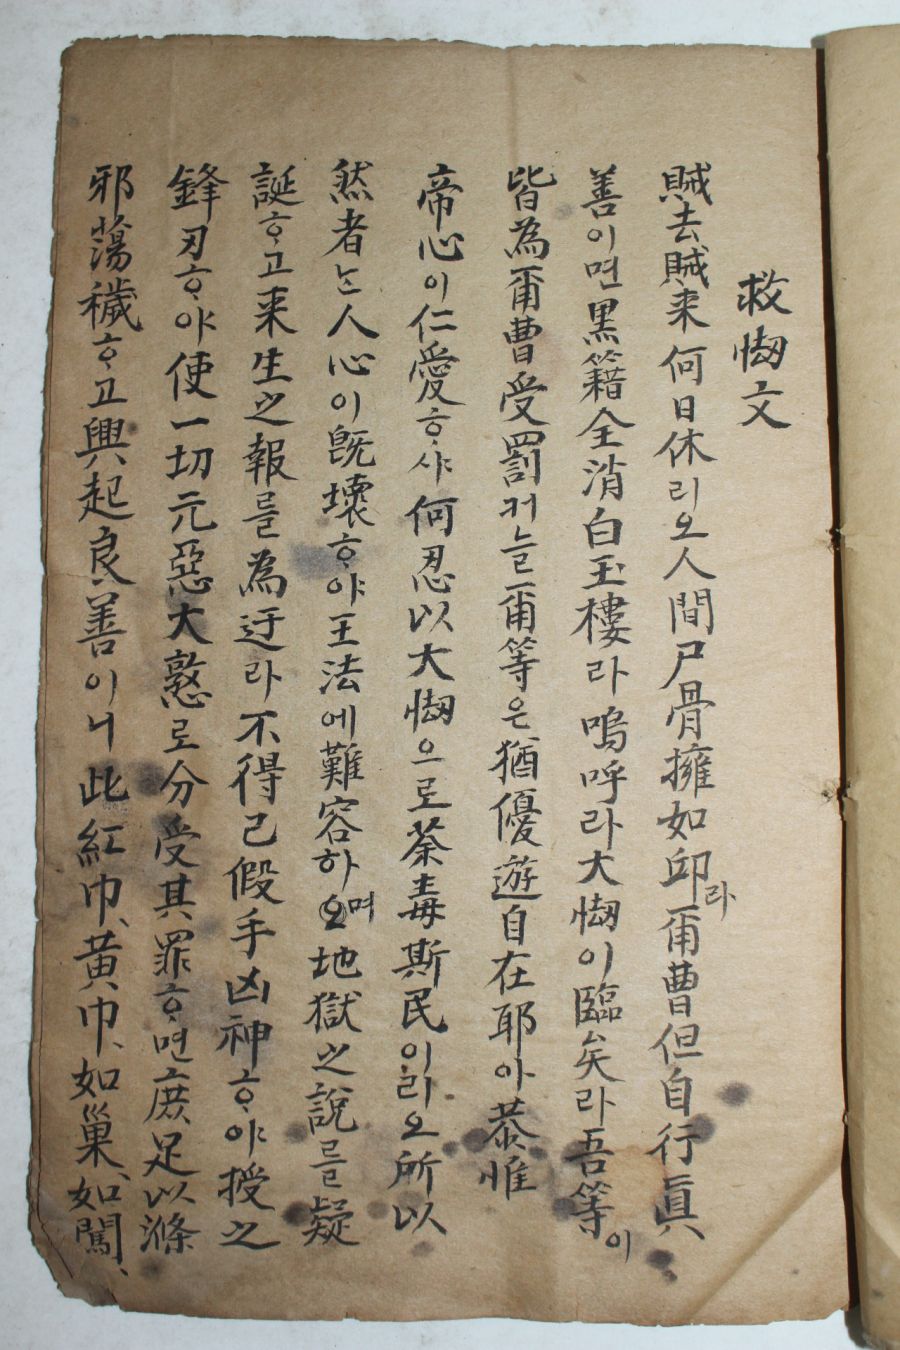 救惱文
賊去賊来何日休리오人間尸骨擁如邱라爾曹但自行眞
善이면黑籍全消白玉樓라嗚呼라大惱이臨矣라吾等이
皆為爾曹受罰커늘爾等은猶優遊自在耶아恭惟
帝心이仁愛ᄒᆞ샤何忍以大惱으로荼毒斯民이리오所以
然者는人心이旣壞ᄒᆞ야王法에難容하오며地獄之說를疑
誕ᄒᆞ고来生之報를為迂라不得已假手凶神ᄒᆞ야授之
鋒刃ᄒᆞ야使一切元惡大憝로分受其罪ᄒᆞ면庶足以滌
邪蕩穢ᄒᆞ고興起良善이니此紅巾、黄巾、如巢、如闖、